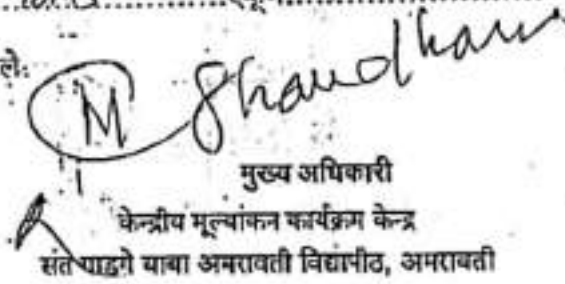 ले.
M
मुख्य अधिकारी
केन्द्रीय मूल्यांकन कार्यक्रम केन्द्र
संत गाडगे बाबा अमरावती विद्यापीठ, अमरावती